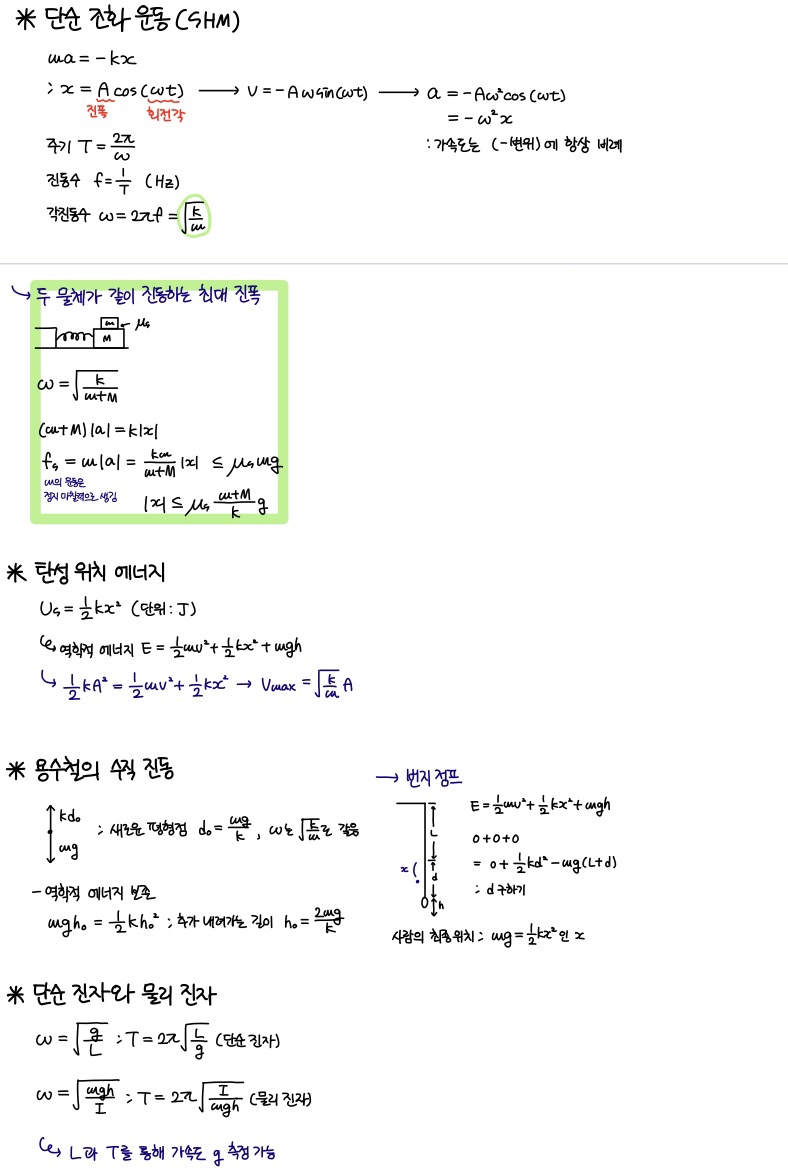 * 단순 조화 운동(SHM)
ma = -kx
: x = A cos(ωt) → v = -Aω sin(ωt) → a = -Aω² cos(ωt)
진폭 회전각
= -ω²x
: 가속도는 (-변위)에 항상 비례
주기 T = 2π/ω
진동수 f = 1/T (Hz)
각진동수 ω = 2πf = √(k/m)
↳ 두 물체가 같이 진동하는 최대 진폭
m ← μs
M
ω = √(k/(m+M))
(m+M)|a| = k|x|
fs = m|a| = km/(m+M) |x| ≤ μs mg
m의 운동은
정지 마찰력으로 생김
|x| ≤ μs (m+M)/k g
* 탄성 위치 에너지
Us = 1/2 kx² (단위: J)
↳ 역학적 에너지 E = 1/2 mv² + 1/2 kx² + mgh
↳ 1/2 kA² = 1/2 mv² + 1/2 kx² → Vmax = √(k/m) A
* 용수철의 수직 진동
kd₀
mg
: 새로운 평형점 d₀ = mg/k, ω는 √(k/m)로 같음
- 역학적 에너지 보존
mgh₀ = 1/2 kh₀² : 추가 내려가는 길이 h₀ = 2mg/k
→ 번지 점프
L
d
x
h
E = 1/2 mv² + 1/2 kx² + mgh
0+0+0
= 0 + 1/2 kd² - mg(L+d)
: d 구하기
사람의 최종 위치 : mg = 1/2 kx² 인 x
* 단순 진자와 물리 진자
ω = √(g/L) : T = 2π√(L/g) (단순 진자)
ω = √(mgh/I) : T = 2π√(I/mgh) (물리 진자)
↳ L과 T를 통해 가속도 g 측정 가능